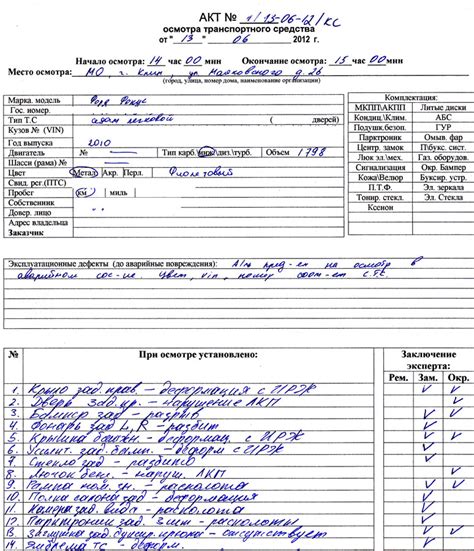 АКТ № 1/13-06-12/КС
осмотра транспортного средства
от " 13 " 06 2012 г.
Начало осмотра: 14 час 00 мин Окончание осмотра: 15 час 00 мин
Место осмотра: МО г. Клин, ул Маяковского д. 26
(город, улица, номер дома, наименование организации)
Марка. модель Форд Фокус
Гос. номер.
Тип Т.С седан легковой ( дверей)
Кузов № (VIN)
Год выпуска 2010
Двигатель № — Тип карб./инж/диз./турб. Объем 1798
Шасси (рама) № —
Цвет Метал Акр. Перл. Фиолетовый
Свид. рег.(ПТС)
Пробег км миль
Собственник
Довер. лицо
Адрес владельца
Заказчик
Комплектация:
МКПП\АКПП Литые диски
Кондиц.\Клим. АБС
Подушк.безоп. ГУР
Парктроник Омыв. фар
Центр. замок П\букс. сист.
Люк эл./мех. Газ. оборудов.
Сигнализация Окр. Бампер
Кожа\Велюр Буксир. устр.
П.Т.Ф. Эл. зеркала
Тонир. стекл. Эл. Стекла
Ксенон
Эксплуатационные дефекты (до аварийные повреждения): А/м пред-ен на осмотр в
аварийном сос-ие. Цвет, vin, номер соот-ет С.Т.С.
№ При осмотре установлено: Заключение эксперта:
Рем. Зам. Окр.
1. Крыло зад. прав. – деформация с ИРЖ
2. Дверь зад. пр. – нарушение ЛКП
3. Бампер зад – разрыв
4. Фонарь зад L, R – разбит
5. Крышка багажн. – деформац. с ИРЖ
6. Усилит. зад. бамп. – деформ с ИРЖ
7. Стекло зад – разбито
8. Лючок бенз. – наруш. ЛКП
9. Рамка ном. зн. – расколота
10. Полка салона зад – деформация
11. Камера зад. вида – расколота
12. Парктроники зад. 3 шт – расколоты
13. Заглушка зад. буксир. крюка – отсутствует
14. Эмблема ТС – деформ.